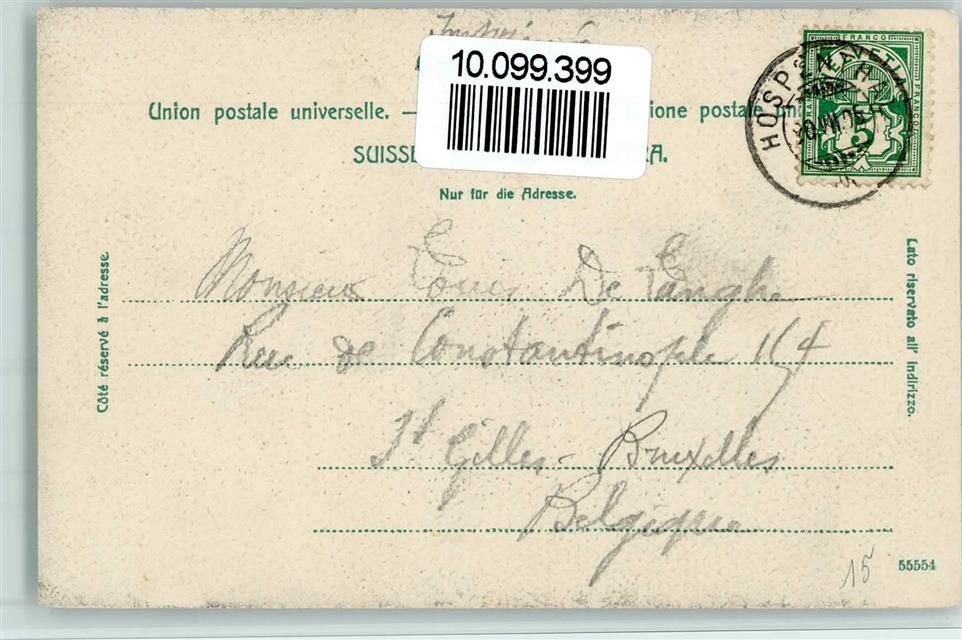 Imprimé
10.099.399
Union postale universelle. — ione postale uni
SUISSE RA.
Nur für die Adresse.
FRANCO
HELVETIA
FRANCO
5
HOSPENTHAL
Côté réservé à l'adresse.
Lato riservato all' indirizzo.
Monsieur Louis De Langhe
Rue de Constantinople 114
St Gilles - Bruxelles
Belgique
15
55554